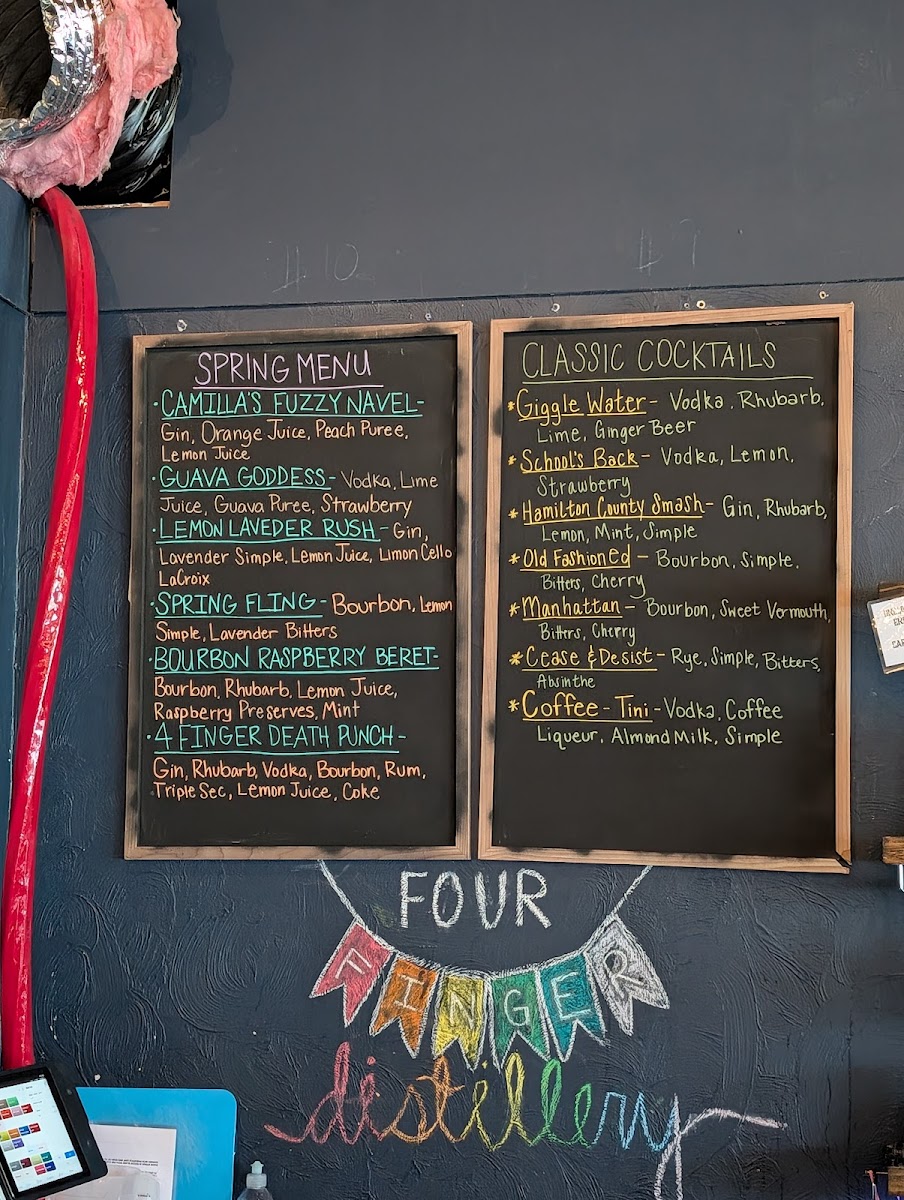 #10
#7
SPRING MENU
·CAMILLA'S FUZZY NAVEL-
Gin, Orange Juice, Peach Puree,
Lemon Juice
·GUAVA GODDESS- Vodka, Lime
Juice, Guava Puree, Strawberry
·LEMON LAVEDER RUSH- Gin,
Lavender Simple, Lemon Juice, Limon Cello
LaCroix
·SPRING FLING- Bourbon, Lemon
Simple, Lavender Bitters
·BOURBON RASPBERRY BERET-
Bourbon, Rhubarb, Lemon Juice,
Raspberry Preserves, Mint
·4 FINGER DEATH PUNCH-
Gin, Rhubarb, Vodka, Bourbon, Rum,
Triple Sec, Lemon Juice, Coke
CLASSIC COCKTAILS
*Giggle Water- Vodka, Rhubarb,
Lime, Ginger Beer
*School's Back- Vodka, Lemon,
Strawberry
*Hamilton County Smash- Gin, Rhubarb,
Lemon, Mint, Simple
*Old Fashioned- Bourbon, Simple,
Bitters, Cherry
*Manhattan- Bourbon, Sweet Vermouth,
Bitters, Cherry
*Cease & Desist- Rye, Simple, Bitters,
Absinthe
*Coffee-Tini- Vodka, Coffee
Liqueur, Almond Milk, Simple
FOUR
FINGER
distillery